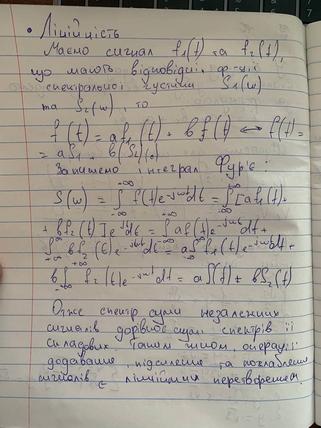 • Лінійність
Маємо сигнал f₁(t) та f₂(t),
що мають відповідні ф-ції
спектральної густини S₁(w)
та S₂(w), то
f(t) = af₁(t) + bf(t) ⟷ f(t) =
= aS₁ + b(S₂)
Запишемо інтеграл Фур'є:
S(w) = ∫ f(t)e^{-jwt}dt = ∫[af₁(t)+
+ bf₂(t)]e^{-jwt}dt = ∫af(t)e^{-jwt}dt +
∫bf₂(t)e^{-jwt}dt = a∫f₁(t)e^{-jwt}dt +
b∫f₂(t)e^{-jwt}dt = aS(t) + bS₂(t)
Отже спектр суми незалежних
сигналів дорівнює сумі спектрів її
складових. Таким чином, операції
додавання, підсилення та послаблення
сигналів є лінійними перетвореннями.